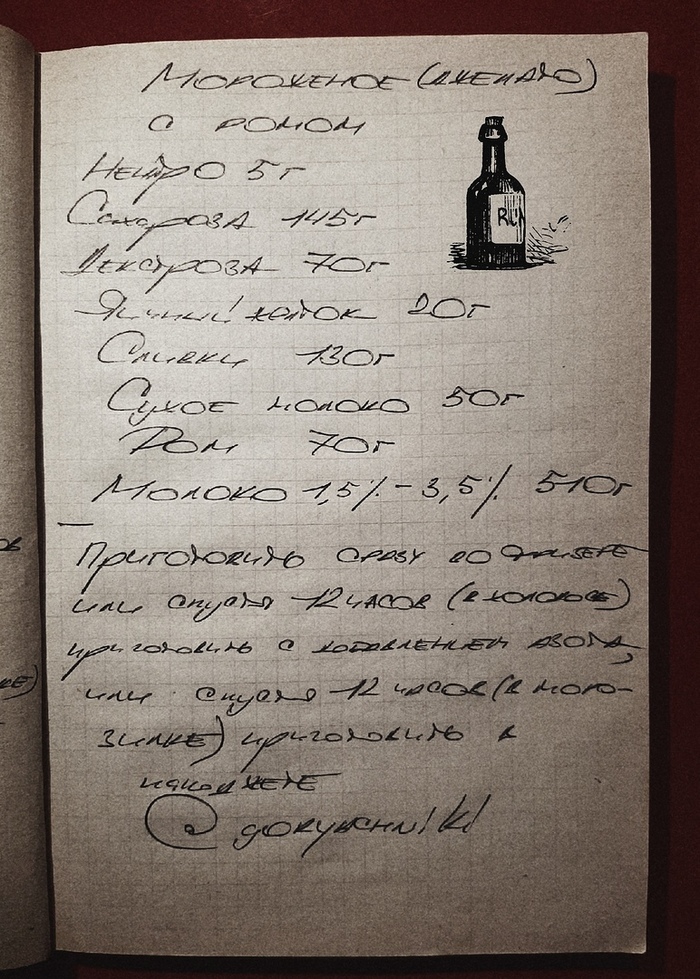 Мороженое (джелато)
с ромом
RUM
Нейтро 5г
Сахароза 145г
Декстроза 70г
Яичный желток 20г
Сливки 130г
Сухое молоко 50г
Ром 70г
Молоко 1,5% - 3,5% 510г
Приготовить сразу во фризере
или спустя 12 часов (в холоде)
приготовить с добавлением азота,
или спустя 12 часов (в моро-
зилке) приготовить в
пакоджете